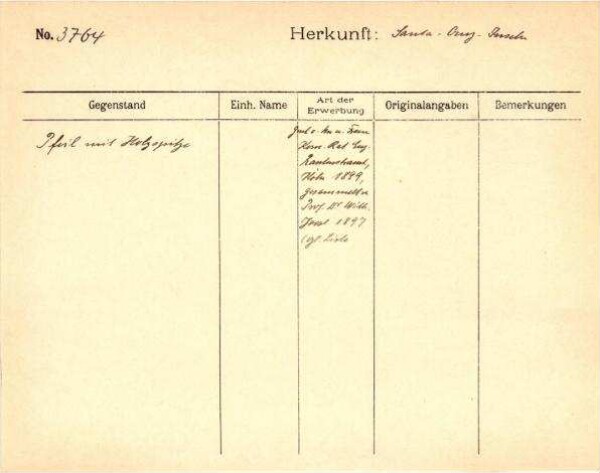 No. 3764 Herkunft: Santa-Cruz-Inseln
Gegenstand Einh. Name Art der Erwerbung Originalangaben Bemerkungen
Pfeil mit Holzspitze
v. u. Frau
Kom. Rat Eug.
Rautenstrauch,
Köln 1899,
gesammelt v.
Prof. Dr Wilh.
Joest 1897
(vgl. Liste